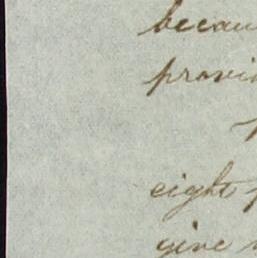 becau
provi
eight
give